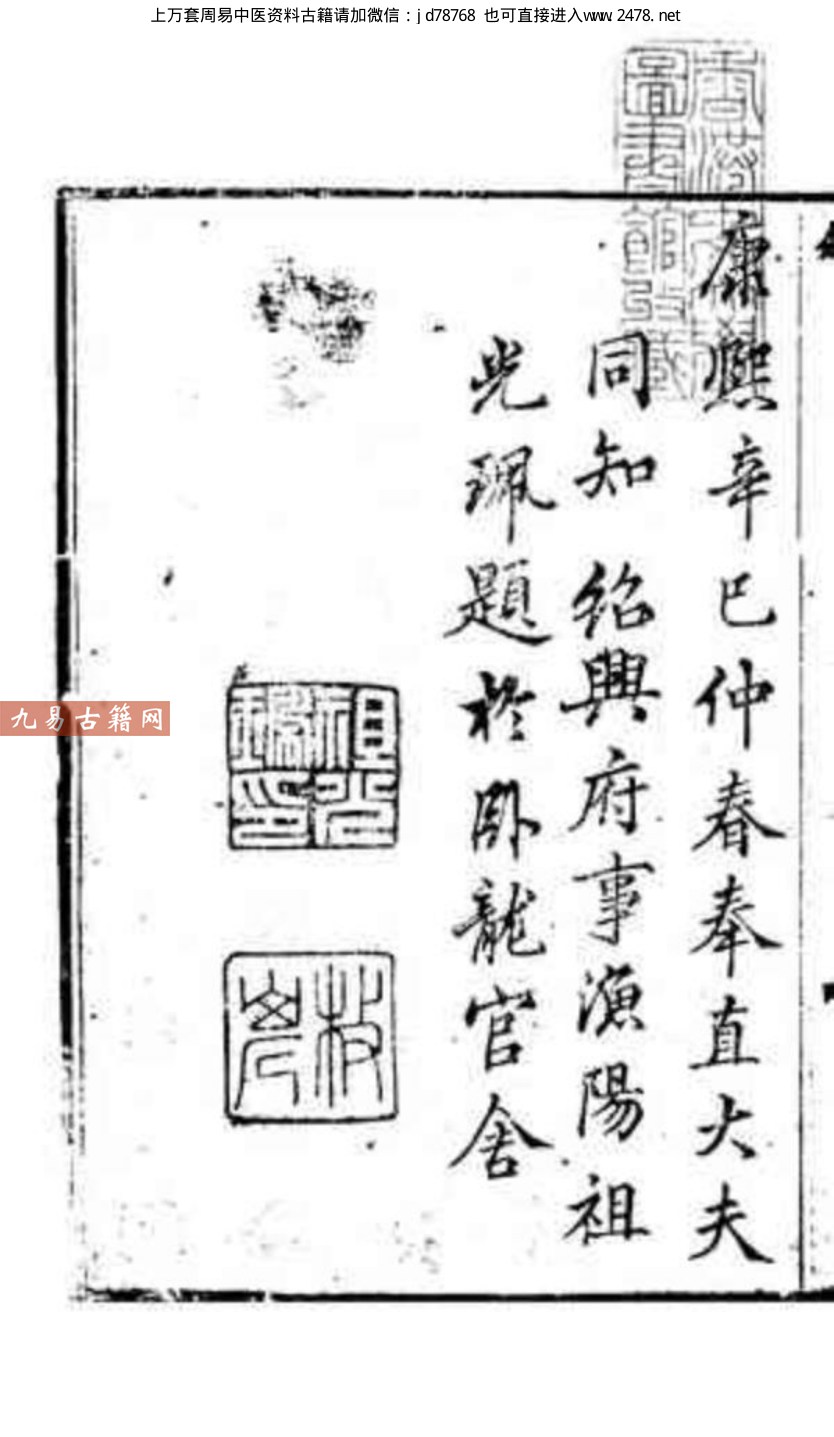 上万套周易中医资料古籍请加微信：jd78768 也可直接进入www.2478.net
康熙辛巳仲春奉直大夫
同知紹興府事漁陽祖
光珮題於卧龍官舍
九易古籍网